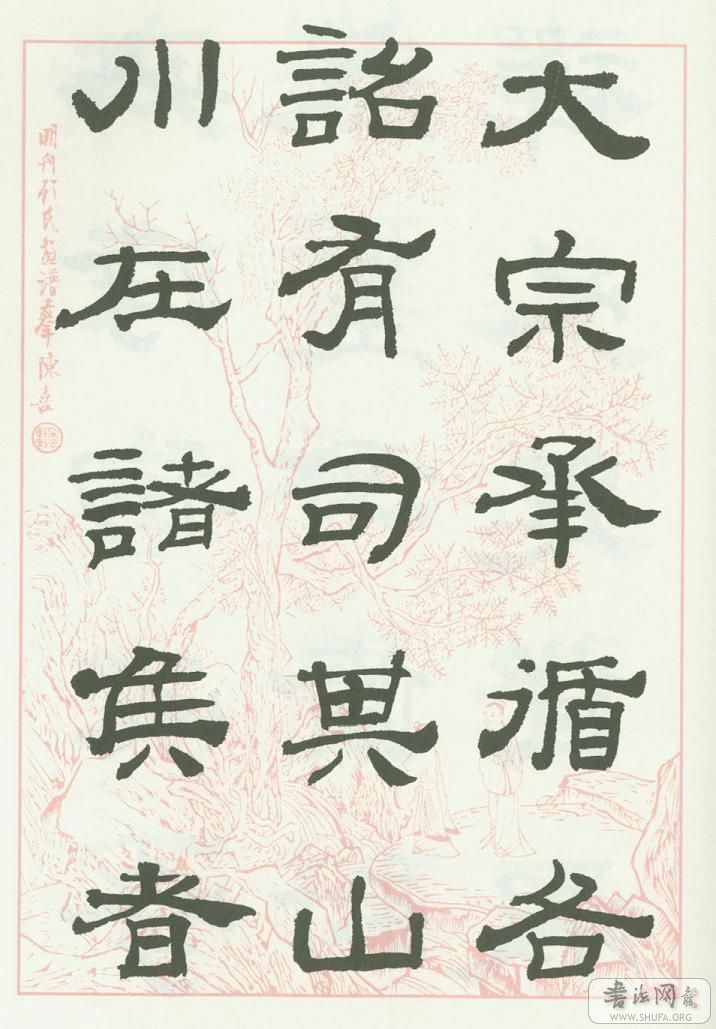 大宗承循各
詔有司其山
川在諸侯者
明刊顾氏画譜摹陳喜
書法网
WWW.SHUFA.ORG